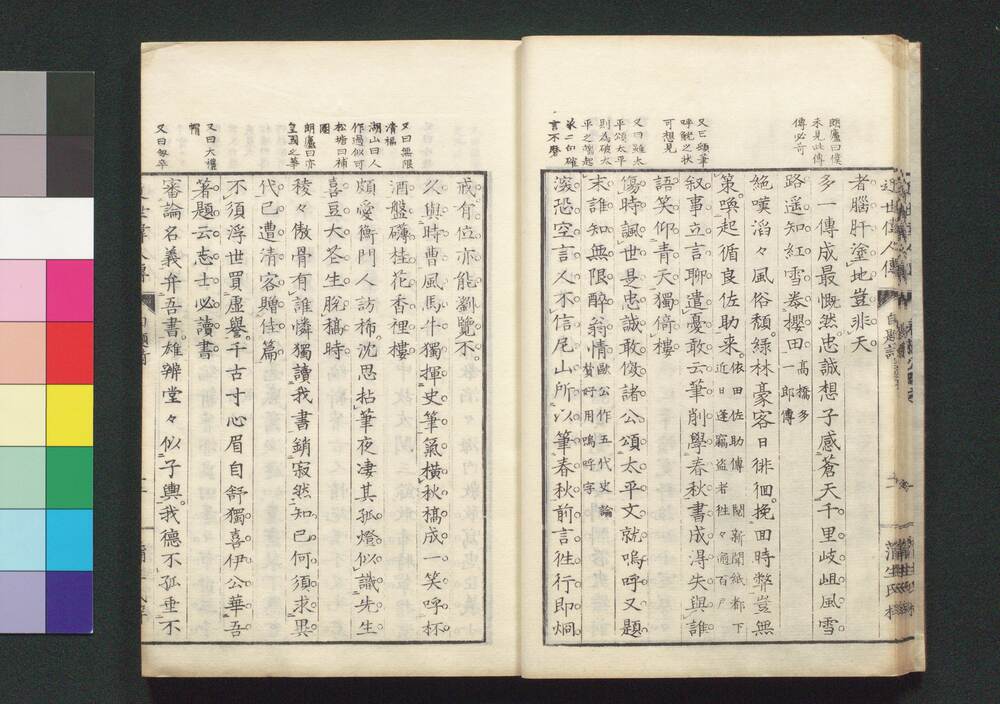 近世偉人傳
自題詩
蒲生氏梓
者腦肝塗地豈非天
多一傳成最慨然忠誠想子感蒼天千里岐岨風雪
路遥知紅雪養櫻田高橋多一郎傳
絶嘆滔々風俗頽綠林豪客日徘徊挽回時弊豈無
策喚起循良佐助来依田佐助傳閲新聞紙都下近日逢竊盗者徃々過百戸
叙事立言聊遣憂敢云筆削學春秋書成得失與誰
語笑仰青天獨倚樓
傷時諷世是忠誠敢傚諸公頌太平文就嗚呼又題
末誰知無限酔翁情歐公作五代史論好用嗚呼字
滾恐空言人不信尾山所以筆春秋前言徃行即炯
朗廬曰僕
未見此傳
傳必奇
又曰頌筆
呼觥之状
可想見
又曰雖太
平頌太平
則為破太
平之端起
承二句確
言不磨
戒有位亦能瀏覽不
久與時曹風馬牛獨揮史筆氣橫秋稿成一笑呼杯
酒盤礴桂花香裡樓
頗愛衡門人訪稀沈思拈筆夜凄其孤燈似識先生
喜豆大花生脱稿時
稜々傲骨有誰憐獨讀我書銷寂然知己何須求異
代已遭清客贈佳篇
不須浮世買虚譽千古寸心眉自舒獨喜伊公華吾
著題云志士必讀書
審論名義弁吾書雄辨堂々似子輿我德不孤垂不
又曰無限
清福
湖山曰人
作過似可
松塘曰補
圖
朗廬曰亦
皇國之華
又曰大標
幟
又曰毎卒